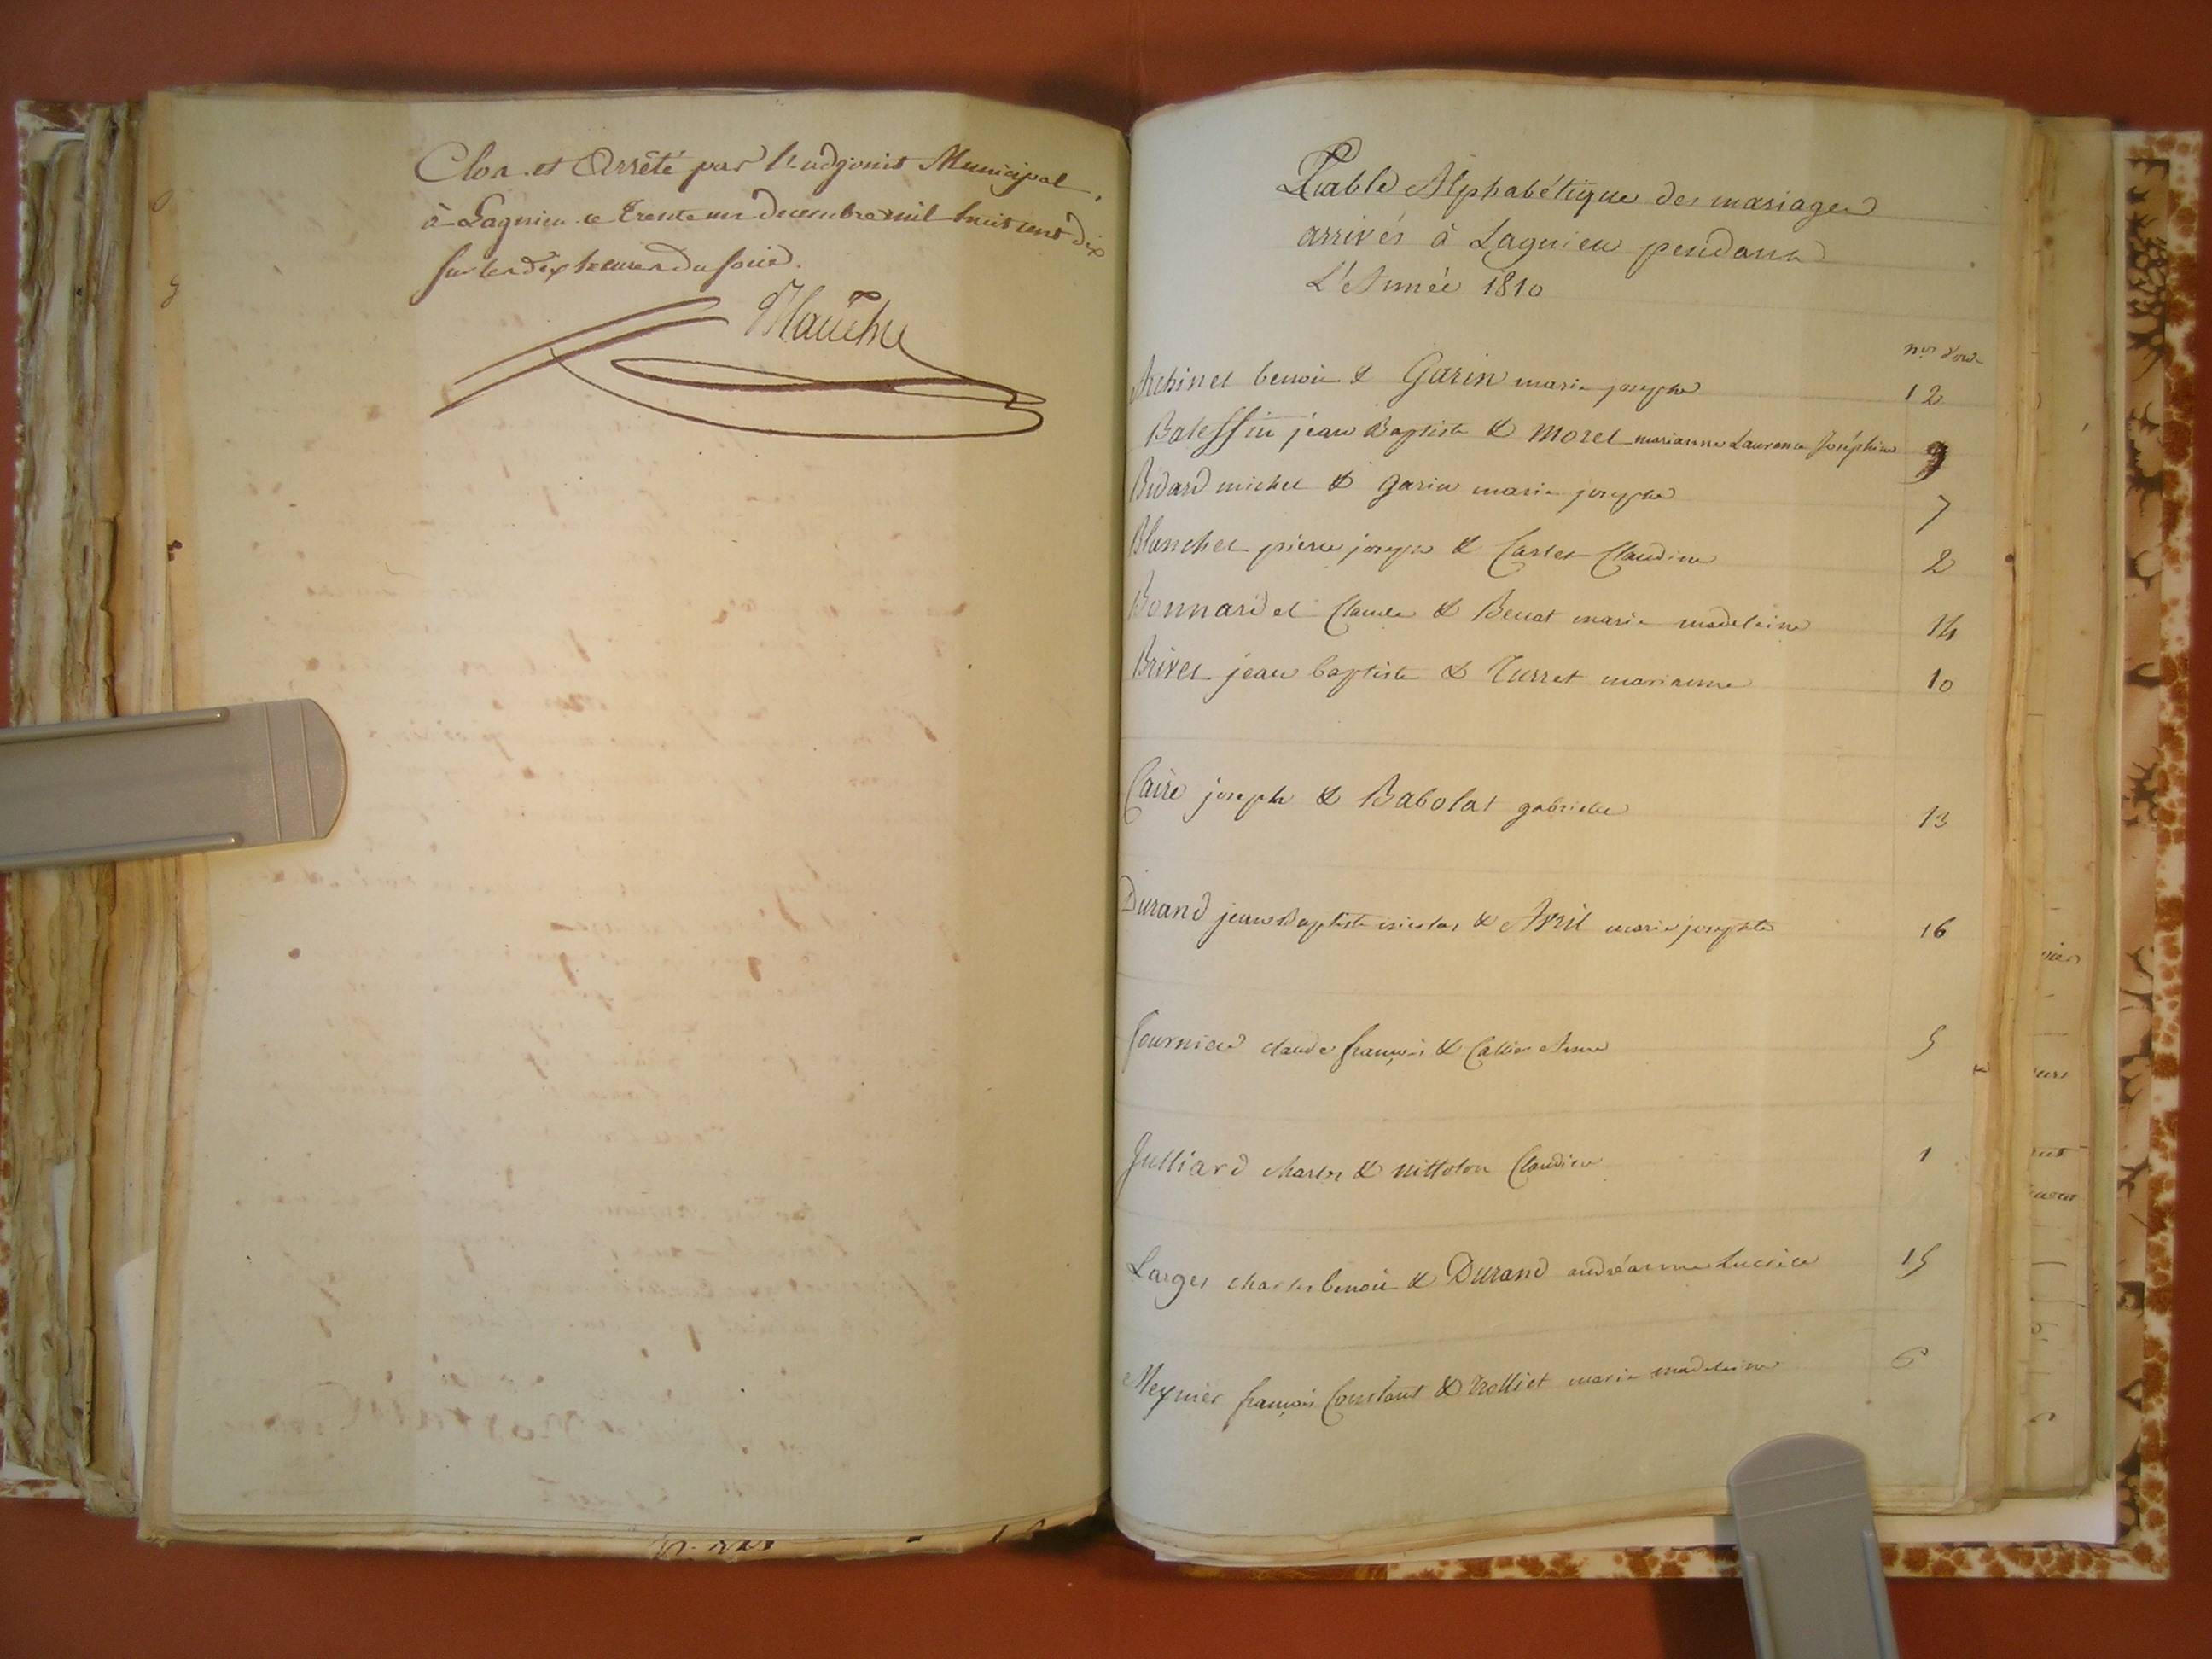 Clos et Arrêté par l'adjoint Municipal
à Lagnieu ce trente un decembre mil huit cent dix
sur les dix heures du soir.
Table Alphabétique des mariages
arrivés à Lagnieu pendant
L'Année 1810
nos d'ord.
Archinet benoit & Garin marie josephe 12
Balessin jean Baptiste & Morel marianne Laurence Joséphine 9
Bidard michel & garin marie josephe 7
Blanchet pierre joseph & Carlet Claudine 2
Bonnardel Claude & Benat marie madeleine 14
Brivet jean baptiste & Turret marianne 10
Caire joseph & Babolat gabrielle 13
Durand jean Baptiste nicolas & Avril marie josephte 16
fournier claude françois & Anne 5
Julliard charles & nittolon Claudine 1
Larges charles benoit & Durand andréanne Lucrèce 15
Meynier françois Constant & trolliet marie madeleine 6